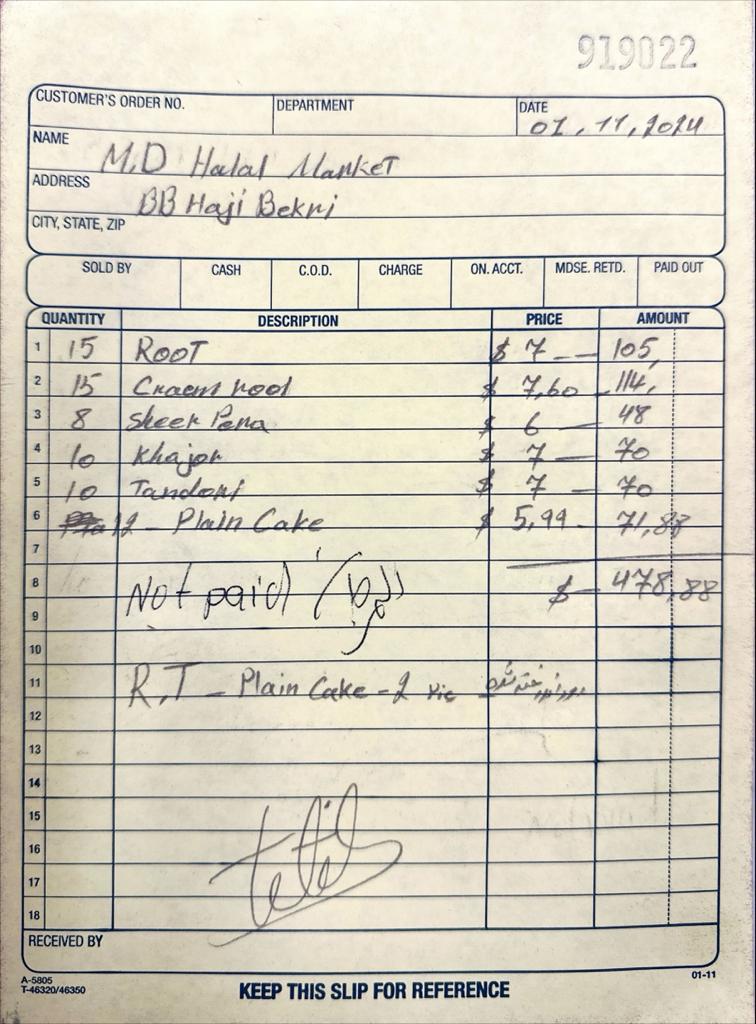 919022
CUSTOMER'S ORDER NO. DEPARTMENT DATE 07,11,2024
NAME M.D Halal Market
ADDRESS BB Haji Bekri
CITY, STATE, ZIP
SOLD BY CASH C.O.D. CHARGE ON. ACCT. MDSE. RETD. PAID OUT
QUANTITY DESCRIPTION PRICE AMOUNT
1 15 ROOT $ 7 — 105,
2 15 Craem root $ 7,60 - 114,
3 8 Sheer Pera $ 6 — 48
4 10 Khajor $ 7 — 70
5 10 Tandori $ 7 — 70
6 12 - Plain Cake $ 5,99 - 71,88
7
8 Not paid $ - 478,88
9
10
11 R,T - Plain Cake - 2
12
13
14
15
16
17
18
RECEIVED BY
A-5805
T-46320/46350
KEEP THIS SLIP FOR REFERENCE
01-11